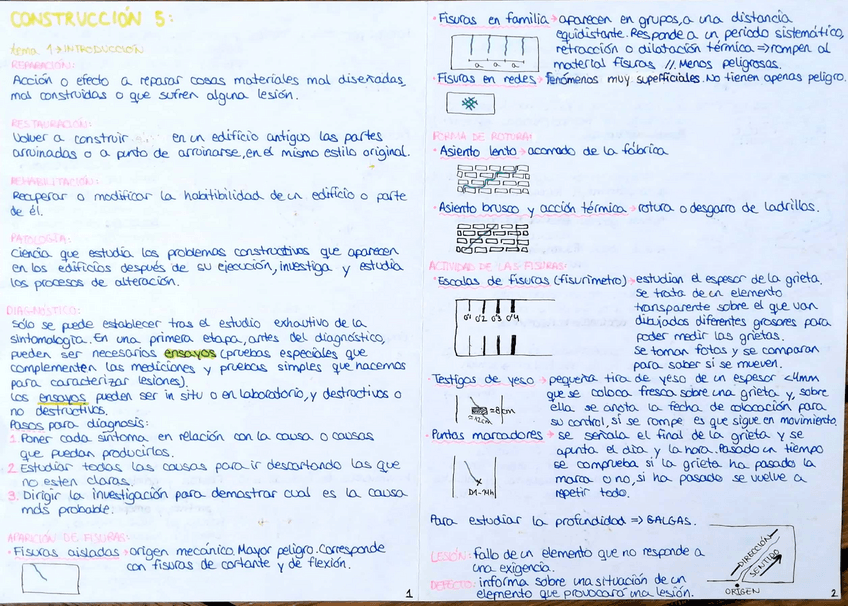 CONSTRUCCIÓN 5:
tema 1→INTRODUCCIÓN
REPARACIÓN:
Acción o efecto a reparar cosas materiales mal diseñadas,
mal construidas o que sufren alguna lesión.
RESTAURACIÓN:
Volver a construir en un edificio antiguo las partes
arruinadas o a punto de arruinarse, en el mismo estilo original.
REHABILITACIÓN:
Recuperar o modificar la habitibilidad de un edificio o parte
de él.
PATOLOGÍA:
Ciencia que estudia los problemas constructivos que aparecen
en los edificios después de su ejecución, investiga y estudia
los procesos de alteración.
DIAGNÓSTICO:
Sólo se puede establecer tras el estudio exhautivo de la
sintomalogía. En una primera etapa, antes del diagnóstico,
pueden ser necesarios ensayos (pruebas especiales que
complementen las mediciones y pruebas simples que hacemos
para caracterizar lesiones).
Los ensayos pueden ser in situ o en laboratorio, y destructivos o
no destructivos.
Pasos para diagnosis:
1. Poner cada síntoma en relación con la causa o causas
que puedan producirlos.
2. Estudiar todas las causas para ir descartando las que
no esten claras.
3. Dirigir la investigación para demostrar cual es la causa
más probable.
APARICIÓN DE FISURAS:
· Fisuras aisladas→origen mecánico. Mayor peligro. Corresponde
con fisuras de cortante y de flexión.
1
· Fisuras en familia→aparecen en grupos, a una distancia
equidistante. Responde a un periodo sistemático,
retracción o dilatación térmica ⇒ rompen al
material fisuras //. Menos peligrosas.
a a a
· Fisuras en redes→fenómenos muy superficiales. No tienen apenas peligro.
FORMA DE ROTURA:
· Asiento lento→acomodo de la fábrica
· Asiento brusco y acción térmica→rotura o desgarro de ladrillos.
ACTIVIDAD DE LAS FISURAS:
· Escalas de fisuras (fisurímetro)→estudian el espesor de la grieta.
Se trata de un elemento
transparente sobre el que van
dibujados diferentes grosores para
poder medir las grietas.
Se toman fotos y se comparan
para saber si se mueven.
0'1 0'2 0'3 0'4
· Testigos de yeso→pequeña tira de yeso de un espesor <4mm
que se coloca fresca sobre una grieta y, sobre
ella se anota la fecha de colocación para
su control, si se rompe es que sigue en movimiento.
≈8cm
≈12cm
· Puntas marcadores→se señala el final de la grieta y se
apunta el día y la hora. Pasado un tiempo
se comprueba si la grieta ha pasado la
marca o no, si ha pasado se vuelve a
repetir todo.
D1-14h
Para estudiar la profundidad ⇒ GALGAS.
DIRECCIÓN
SENTIDO
ORIGEN
LESIÓN: fallo de un elemento que no responde a
una exigencia.
DEFECTO: informa sobre una situación de un
elemento que provocará una lesión.
2